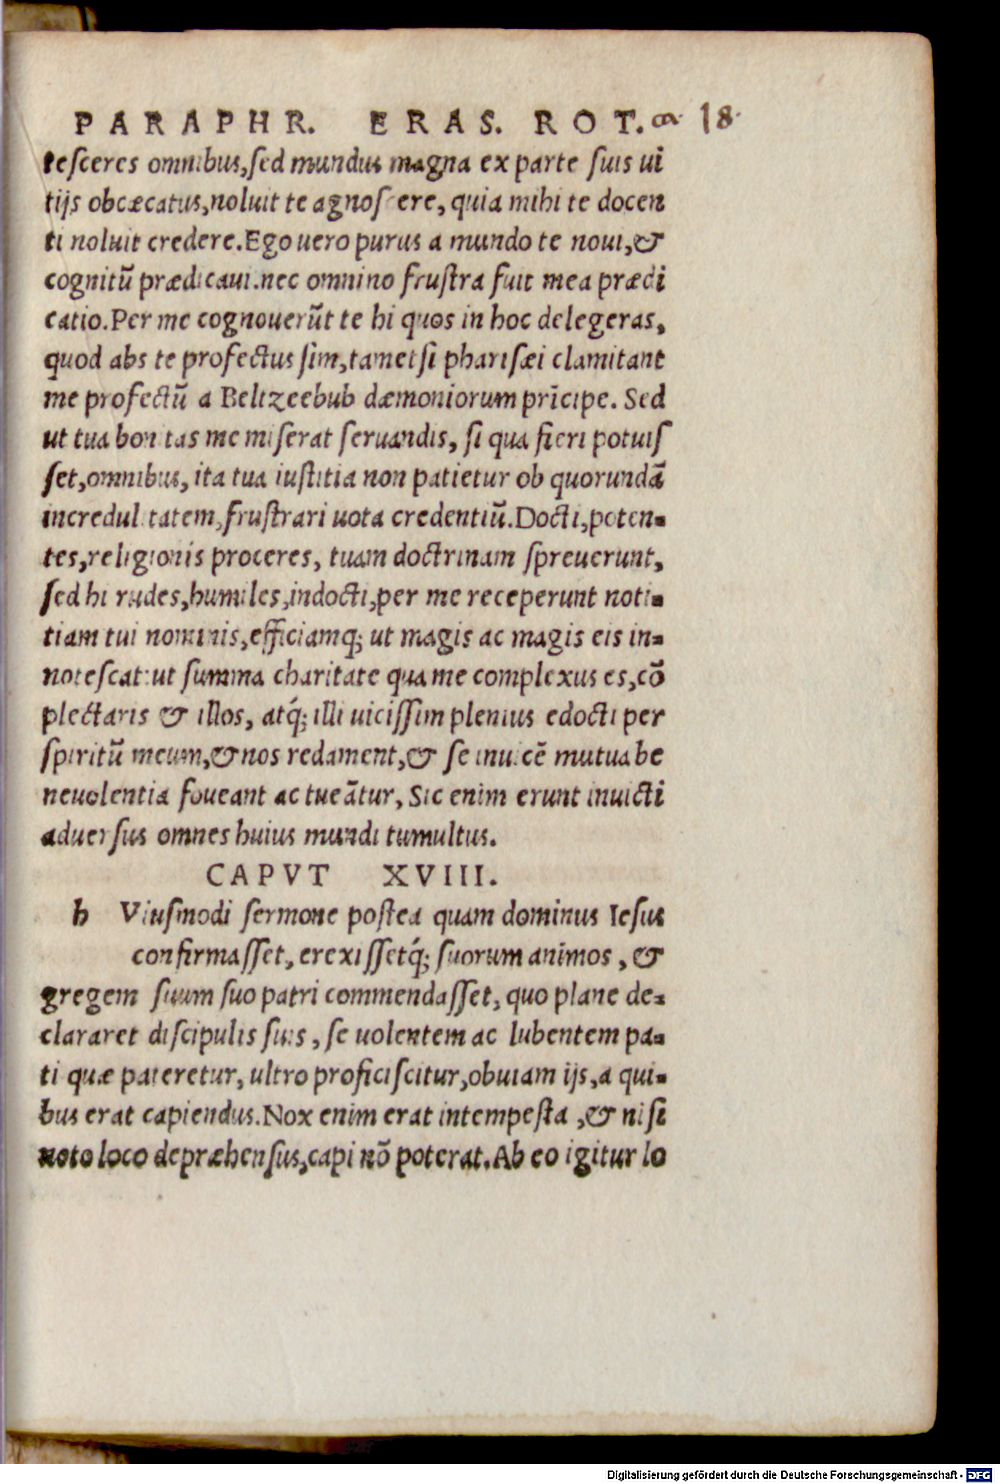 PARAPHR. ERAS. ROT. ca 18.
tesceres omnibus, sed mundus magna ex parte suis ui
tijs obcæcatus, noluit te agnoscere, quia mihi te docen
ti noluit credere. Ego uero purus a mundo te noui, &
cognitū prædicaui. nec omnino frustra fuit mea prædi
catio. Per me cognouerūt te hi quos in hoc delegeras,
quod abs te profectus sim, tametsi pharisæi clamitant
me profectū a Belizeebub dæmoniorum prīcipe. Sed
ut tua bonitas me miserat seruandis, si qua fieri potuis
set, omnibus, ita tua iustitia non patietur ob quorundā
incredulitatem, frustrari uota credentiū. Docti, poten-
tes, religionis proceres, tuam doctrinam spreuerunt,
sed hi rudes, humiles, indocti, per me receperunt noti-
tiam tui nominis, efficiamq; ut magis ac magis eis in-
notescat: ut summa charitate qua me complexus es, cō
plectaris & illos, atq́; illi uicissim plenius edocti per
spiritū meum, & nos redament, & se inuicē mutua be
neuolentia foueant ac tueātur, Sic enim erunt inuicti
aduersus omnes huius mundi tumultus.
CAPVT XVIII.
h Viusmodi sermone postea quam dominus Iesus
confirmasset, erexissetq́; suorum animos, &
gregem suum suo patri commendasset, quo plane de-
clararet discipulis suis, se uolentem ac lubentem pa-
ti quæ pateretur, ultro proficiscitur, obuiam ijs, a qui-
bus erat capiendus. Nox enim erat intempesta, & nisi
noto loco depræhensus, capi nō poterat. Ab eo igitur lo
Digitalisierung gefördert durch die Deutsche Forschungsgemeinschaft - DFG